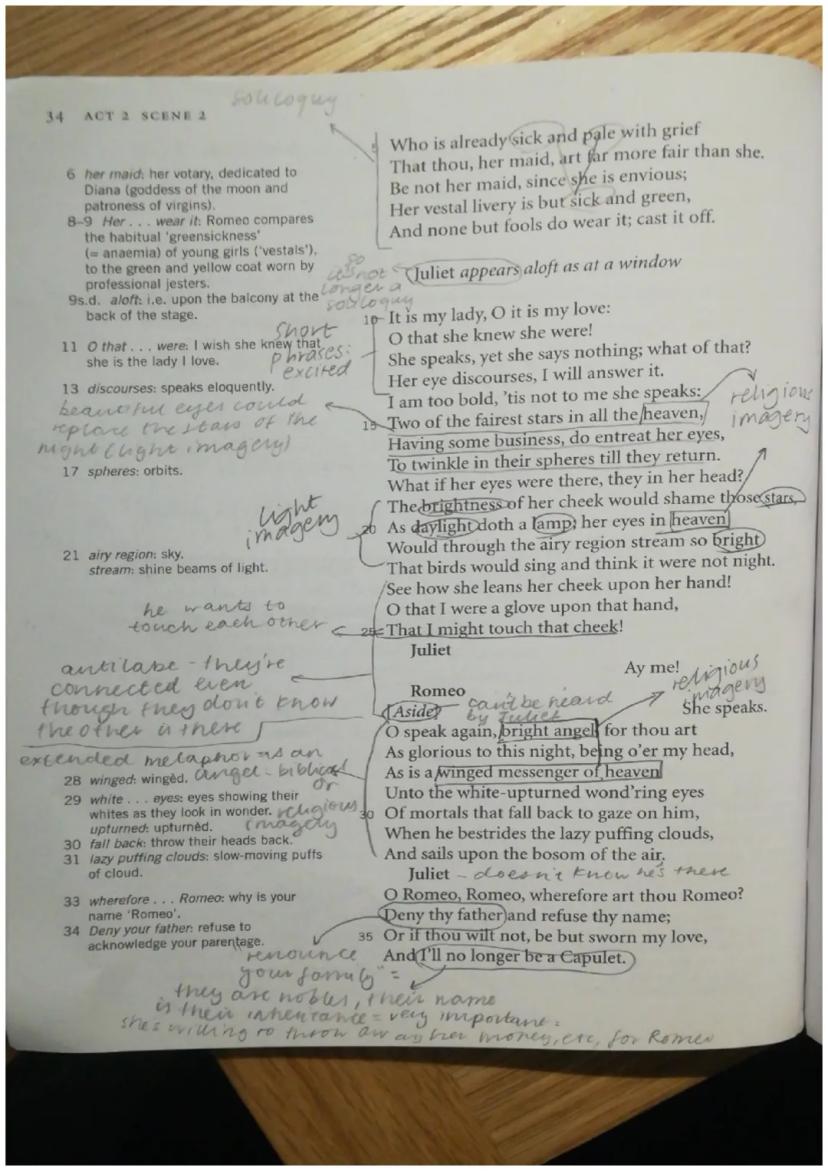 soliloquy
34 ACT 2 SCENE 2
6 her maid: her votary, dedicated to
Diana (goddess of the moon and
patroness of virgins).
8–9 Her . . . wear it: Romeo compares
the habitual 'greensickness'
(= anaemia) of young girls ('vestals'),
to the green and yellow coat worn by
professional jesters.
9s.d. aloft: i.e. upon the balcony at the
back of the stage.
so
it's not
longer a
soliloquy
11 O that . . . were: I wish she knew that
she is the lady I love.
short
phrases:
excited
13 discourses: speaks eloquently.
beautiful eyes could
replace the stars of the
night (light imagery)
17 spheres: orbits.
light
imagery
21 airy region: sky.
stream: shine beams of light.
he wants to
touch each other
antilabe - they're
connected even
though they don't know
the other is there
extended metaphor as an
angel - biblical
or
religious
imagery
28 winged: wingèd.
29 white . . . eyes: eyes showing their
whites as they look in wonder.
upturned: upturnèd.
30 fall back: throw their heads back.
31 lazy puffing clouds: slow-moving puffs
of cloud.
33 wherefore . . . Romeo: why is your
name 'Romeo'.
34 Deny your father: refuse to
acknowledge your parentage.
Who is already sick and pale with grief
That thou, her maid, art far more fair than she.
Be not her maid, since she is envious;
Her vestal livery is but sick and green,
And none but fools do wear it; cast it off.
Juliet appears aloft as at a window
10 It is my lady, O it is my love:
O that she knew she were!
She speaks, yet she says nothing; what of that?
Her eye discourses, I will answer it.
I am too bold, 'tis not to me she speaks:
15 Two of the fairest stars in all the heaven,
Having some business, do entreat her eyes,
To twinkle in their spheres till they return.
What if her eyes were there, they in her head?
The brightness of her cheek would shame those stars,
20 As daylight doth a lamp; her eyes in heaven
Would through the airy region stream so bright
That birds would sing and think it were not night.
See how she leans her cheek upon her hand!
O that I were a glove upon that hand,
25 That I might touch that cheek!
religious
imagery
Juliet
Ay me!
Romeo
She speaks.
religious
imagery
(Aside) can't be heard
by Juliet
O speak again, bright angel, for thou art
As glorious to this night, being o'er my head,
As is a winged messenger of heaven
Unto the white-upturned wond'ring eyes
30 Of mortals that fall back to gaze on him,
When he bestrides the lazy puffing clouds,
And sails upon the bosom of the air.
Juliet - doesn't know he's there
O Romeo, Romeo, wherefore art thou Romeo?
Deny thy father and refuse thy name;
35 Or if thou wilt not, be but sworn my love,
And I'll no longer be a Capulet.
"renounce
your family" =
they are nobles, their name
is their inheritance = very important =
she's willing to throw away her money, etc, for Romeo